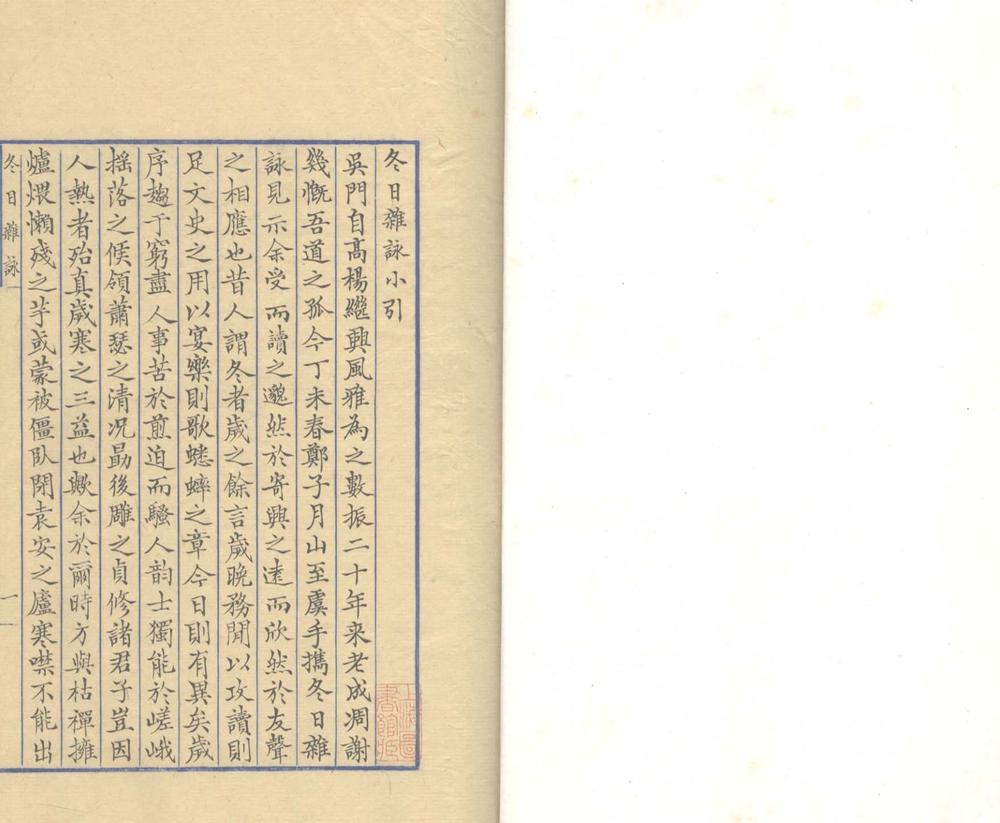 冬日雜詠小引
吳門自高楊繼興風雅為之數振二十年来老成凋謝
幾慨吾道之孤今丁未春鄭子月山至虞手攜冬日雜
詠見示余受而讀之邈然於寄興之遠而欣然於友聲
之相應也昔人謂冬者歲之餘言歲晚務閒以攻讀則
足文史之用以宴樂則歌蟋蟀之章今日則有異矣歲
序趨于窮盡人事苦於煎迫而騷人韵士獨能於嵯峨
揺落之候領蕭瑟之清况勗後雕之貞修諸君子豈因
人熱者殆真歲寒之三益也歟余於爾時方與枯禪擁
爐煨懶殘之芋或蒙被僵臥閉袁安之廬寒噤不能出
冬日雜詠
一
上海圖書館藏